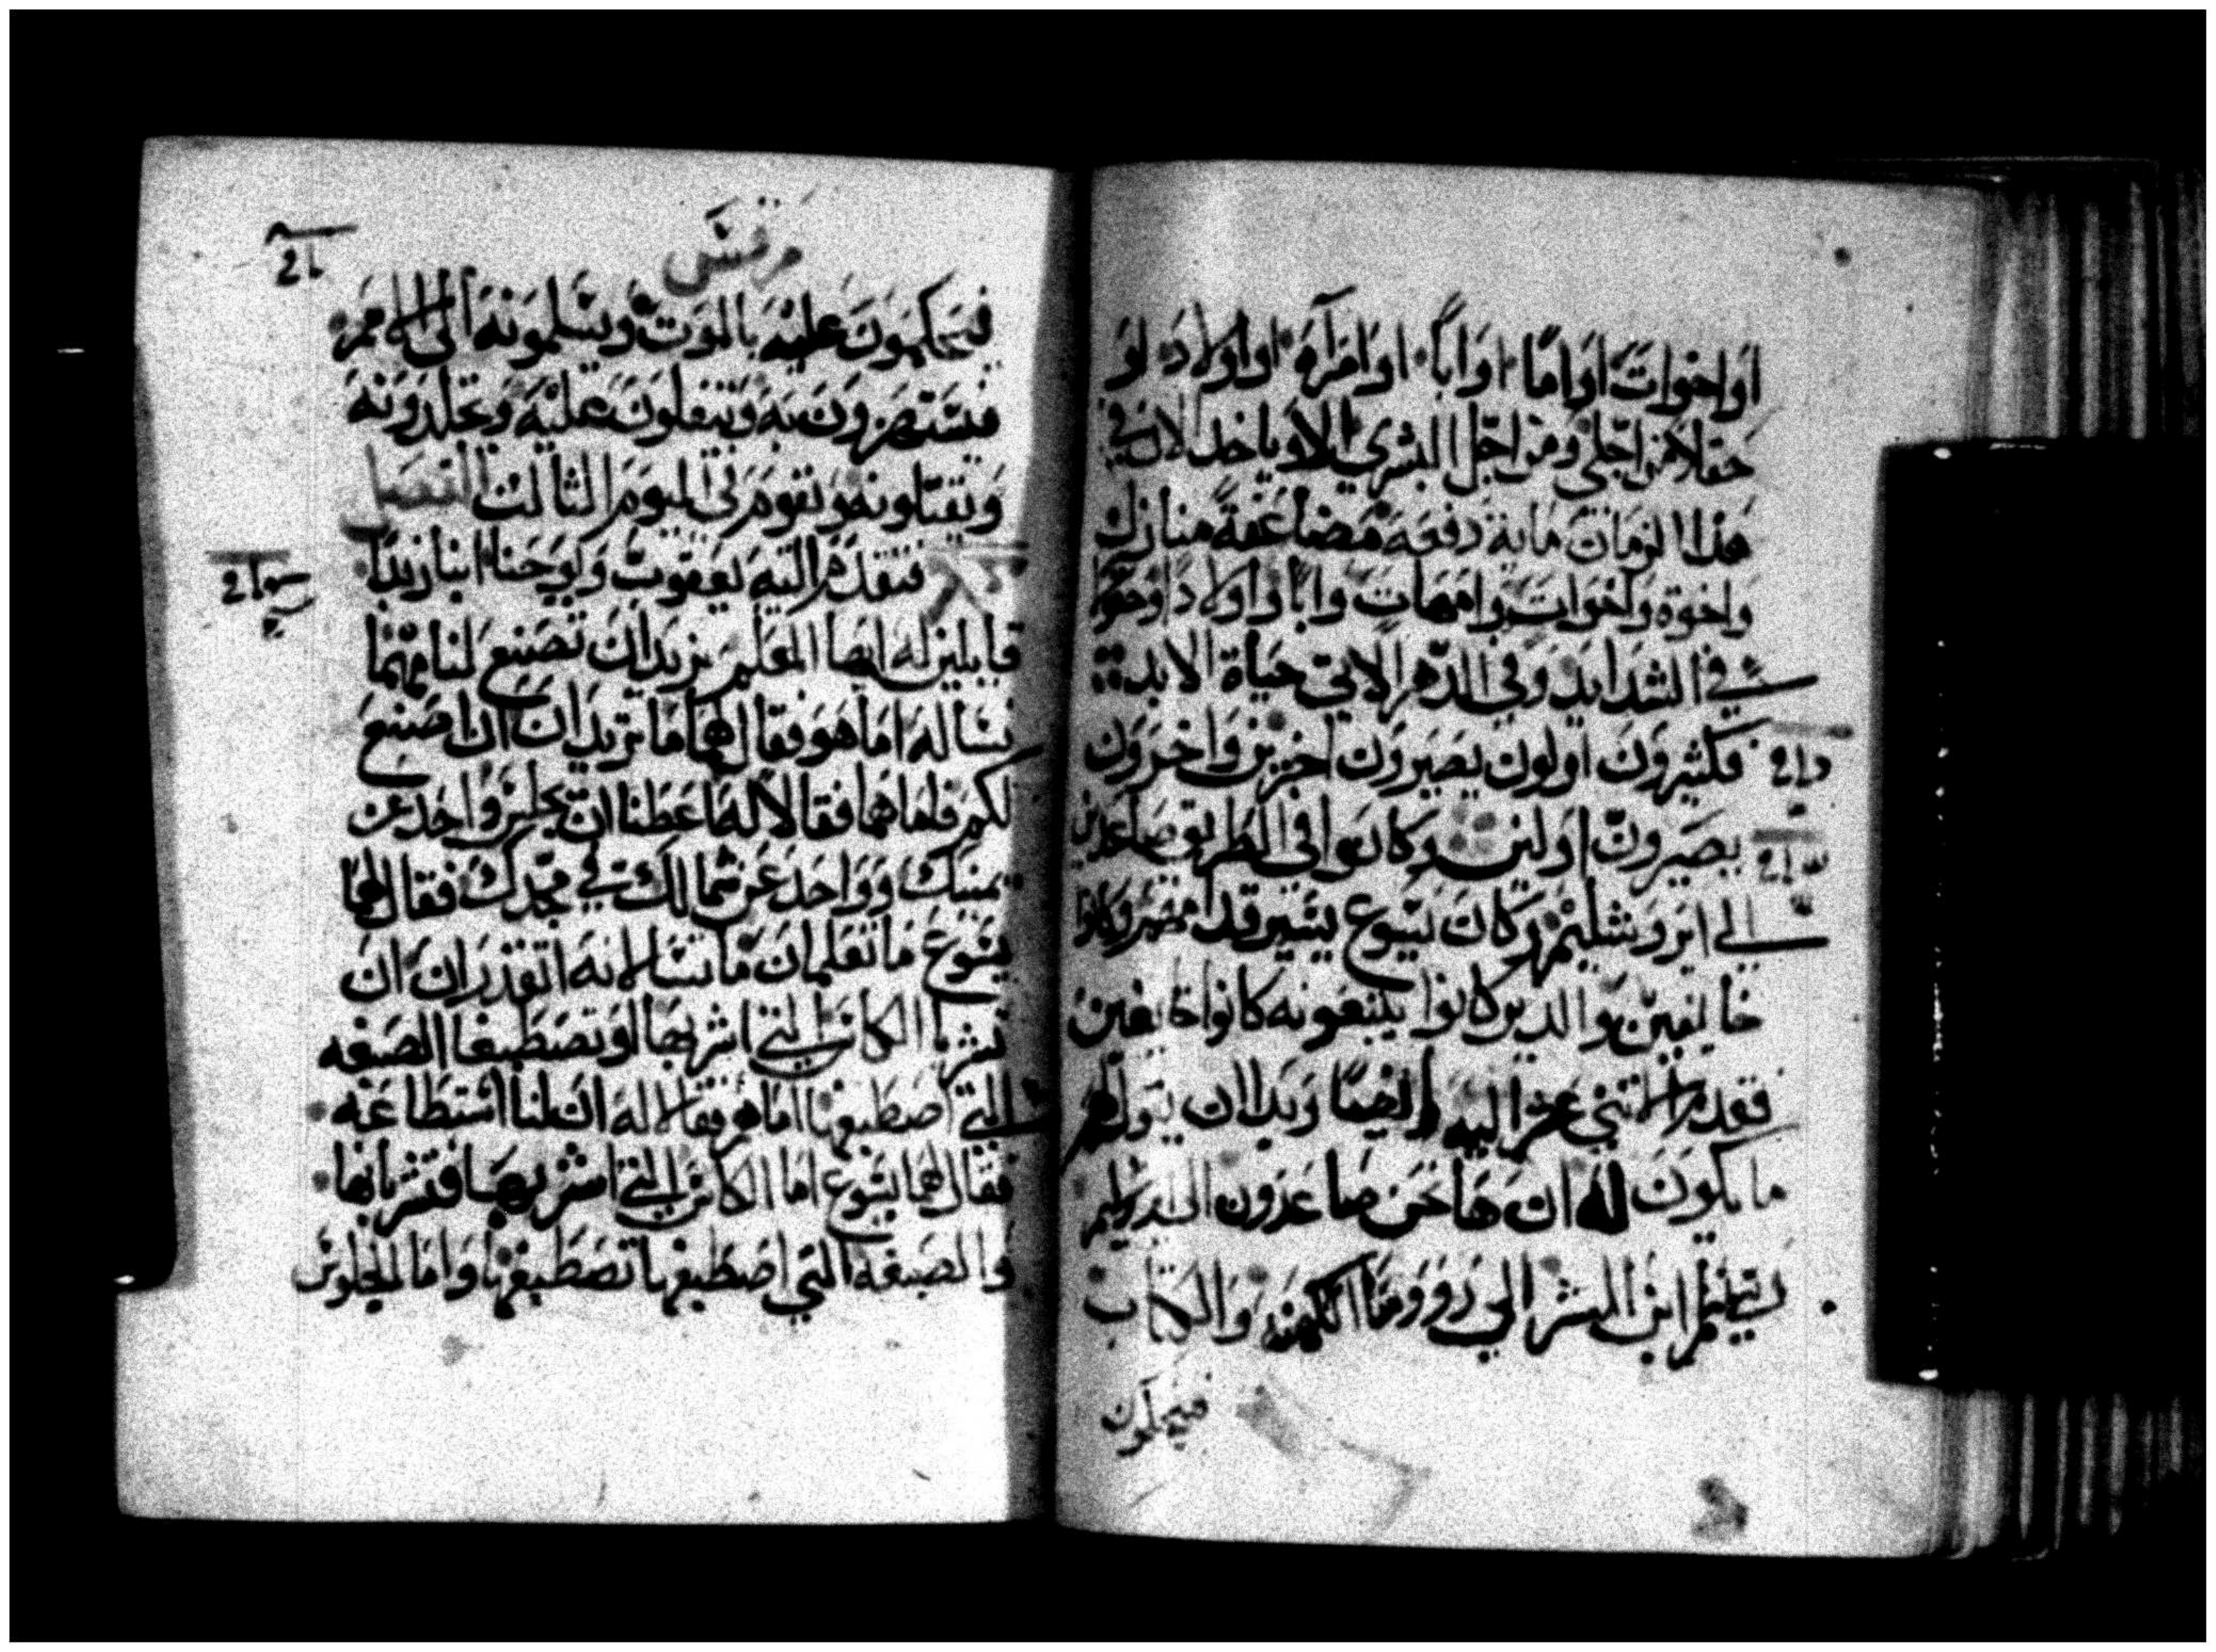 او اخوات او امًا او ابًا او امرآه او اولاد او
حقلا من اجلي ومن اجل البشري الا وياخد الان في
هذا الزمان ماية دفعه مضاعفة منازل
واخوة واخوات وامهات وابا واولادا وحقولا
في الشدايد وفي الدهر الاتي حياة الابد
فكثيرون اولون يصيرون اخرين واخرون
يصيرون اولين وكانوا في الطريق صاعدين
الي ايروشليم وكان يسوع يسير قدامهم وكانوا
خايفين والدين كانوا يتبعونه كانوا خايفين
فقدم الاثني عشر اليه ايضًا وبدا ان يقول لهم
ما يكون له ان ها نحن صاعدون الي ايروشليم
يسلم ابن البشر الي روومسا الكهنه والكتاب
فيحكمون
مرقس
فيحكمون عليه بالموت ويسلمونه الي الامم
فيستهزون به ويتفلون عليه ويجلدونه
ويقتلونه ويقوم في اليوم الثالث الفصل
فتقدم اليه يعقوب ويوحنا ابنا زبدا
قايلين له ايضا المعلم نريد ان تصنع لنا مهما
نساله اما هو فقال لهما ما تريدان ان اصنع
لكم فاما هما فقالا له اعطنا ان يجلس واحد عن
يمينك وواحد عن شمالك في مجدك فقال لهما
يسوع ما تعلمان ما تسالانه اتقدران ان
تشربا الكاس التي اشربها او تصطبغا الصبغه
التي اصطبغها اما هم فقالا له ان لنا استطاعه
فقال لهما يسوع اما الكاس التي اشربها فتشربانها
والصبغه التي اصطبغها تصطبغها واما الجلوس